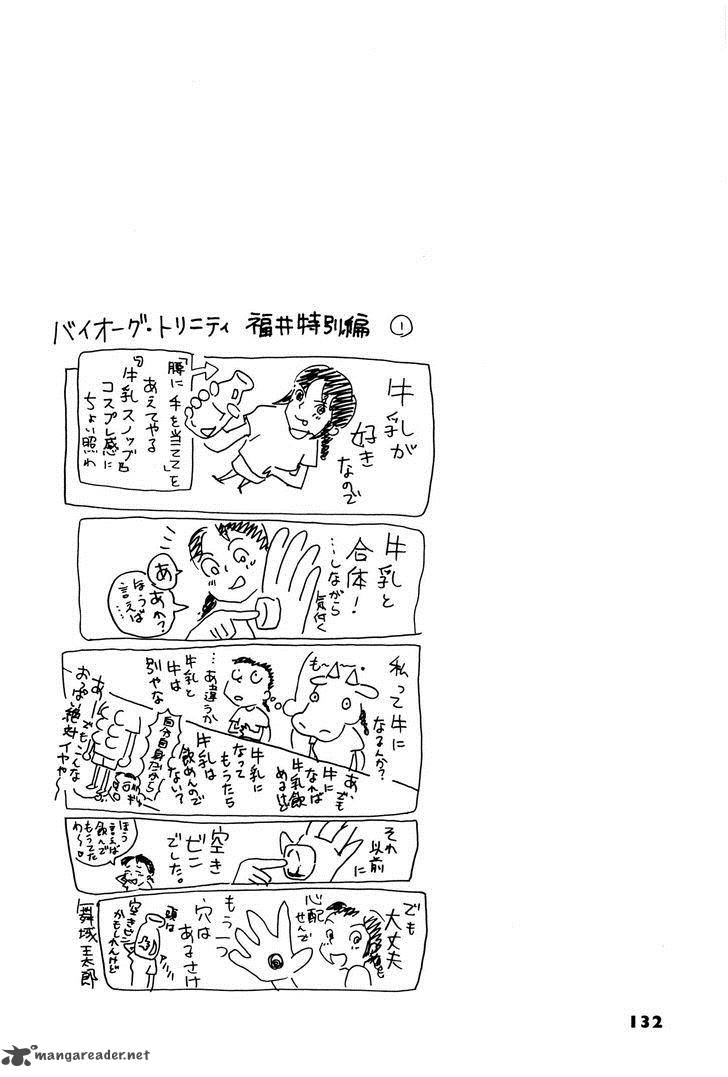 バイオーグ・トリニティ 福井特別編 ①
牛乳が
好き
なので
「腰に手を当てて」を
あえてやる
『牛乳スノッブ』
コスプレ感に
ちょい照れ
牛乳と
合体!
…しながら
気付く
あ
あか?
ほうば
言えば…
私って牛に
なるんか?
も〜
…あ違うか
牛乳と
牛は
別やな
あ、でも
牛に
なれば
牛乳飲
めるけど
牛乳に
なって
もうたら
牛乳は
飲めんので
ない?
自分自身だから
あーでもこんな
おっぱい絶対
イヤやー
それ
以前
に
空き
ビン
でした。
ほう
言えば
飲んで
もうてた
わ〜
でも
大丈夫
心配
せんで
もう一つ
穴は
あるさけ
頭は
空きビン
かもしれんけど
舞城王太郎
132
mangareader.net